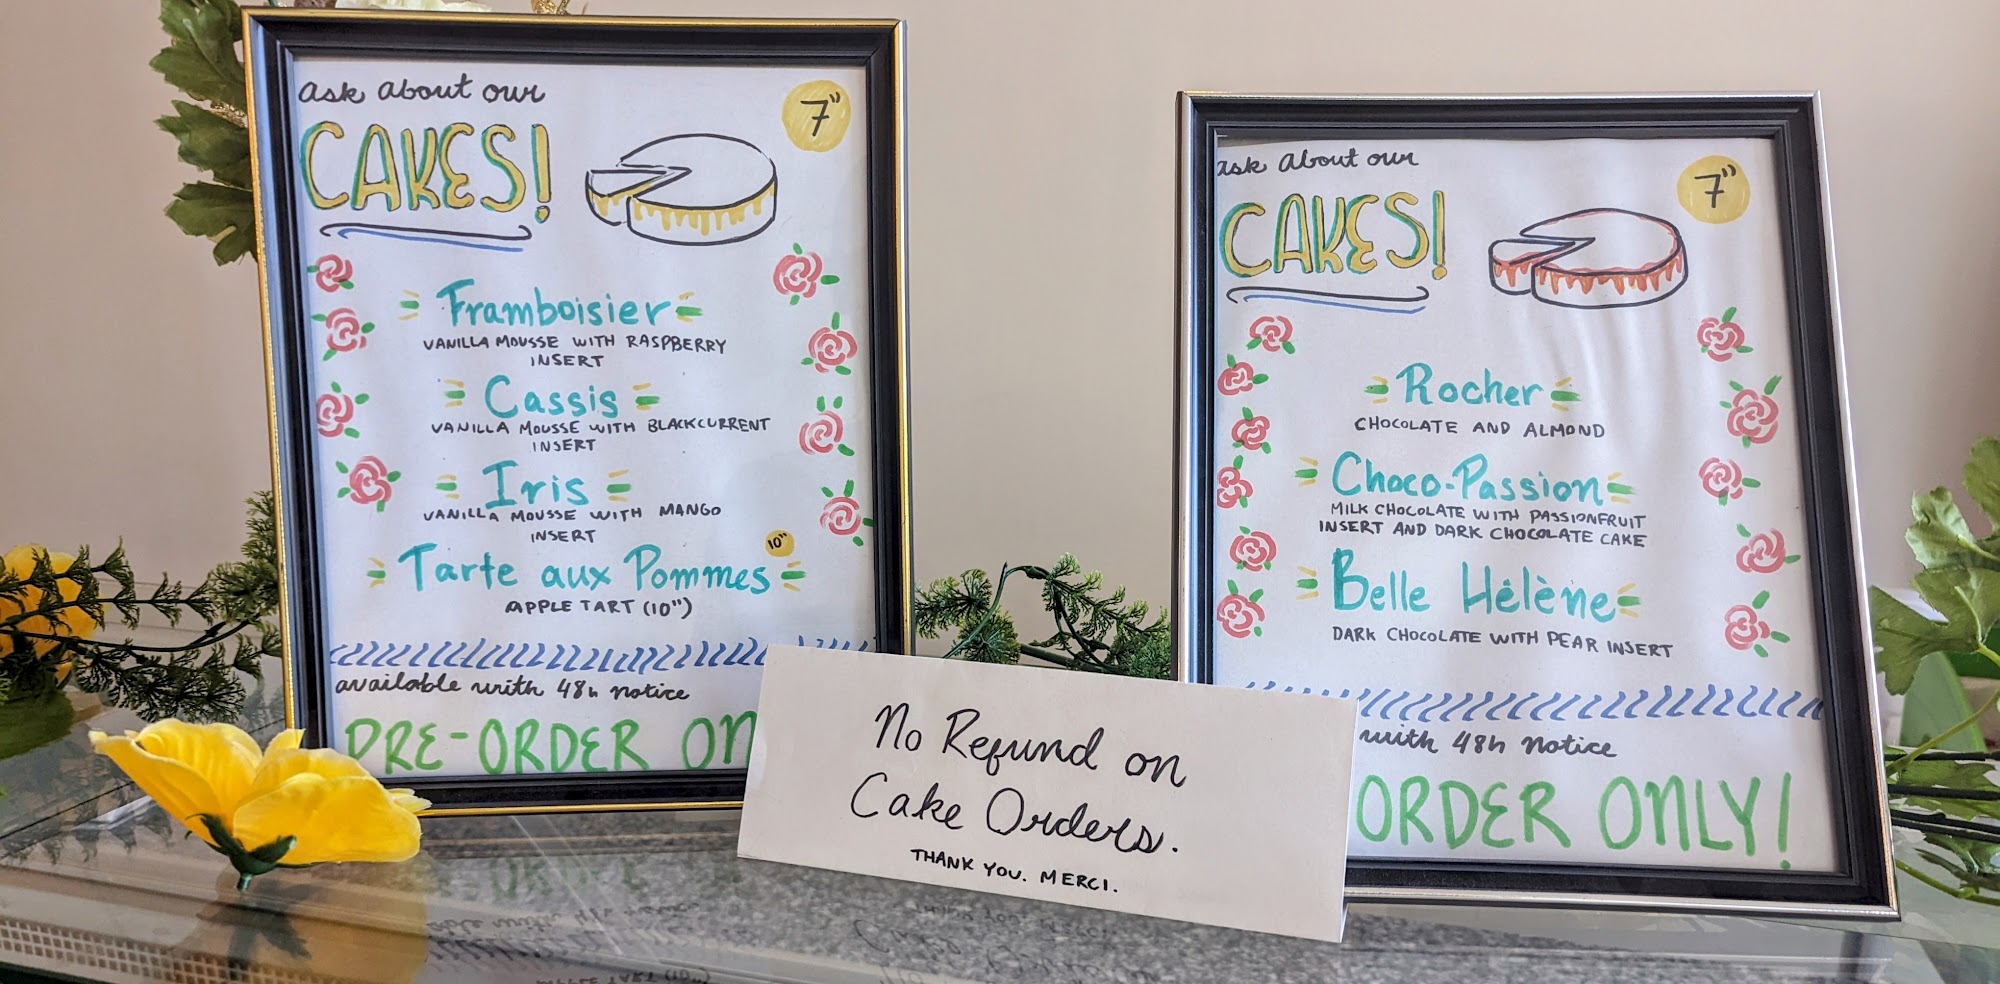 ask about our
CAKES!
7"
Framboisier
VANILLA MOUSSE WITH RASPBERRY
INSERT
Cassis
VANILLA MOUSSE WITH BLACKCURRENT
INSERT
Iris
VANILLA MOUSSE WITH MANGO
INSERT
10"
Tarte aux Pommes
APPLE TART (10")
available with 48h notice
PRE-ORDER ON
No Refund on
Cake Orders.
THANK YOU. MERCI.
ask about our
CAKES!
7"
Rocher
CHOCOLATE AND ALMOND
Choco-Passion
MILK CHOCOLATE WITH PASSIONFRUIT
INSERT AND DARK CHOCOLATE CAKE
Belle Hélène
DARK CHOCOLATE WITH PEAR INSERT
with 48h notice
ORDER ONLY!